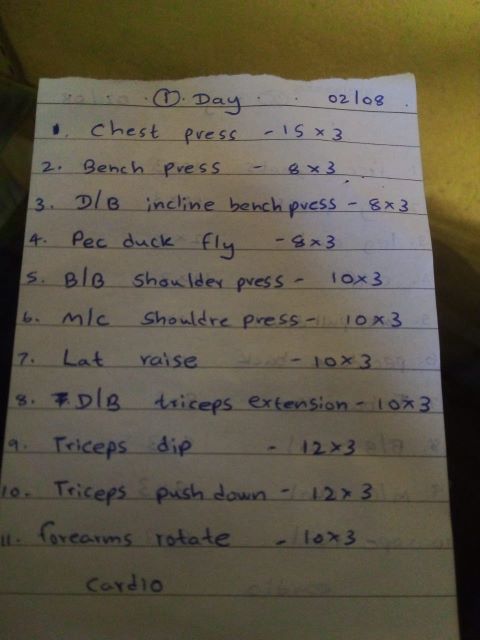 ① Day 02/08
1. Chest press - 15 x 3
2. Bench press - 8 x 3
3. D/B incline bench press - 8 x 3
4. Pec duck fly - 8 x 3
5. B/B shoulder press - 10 x 3
6. M/C shouldre press - 10 x 3
7. Lat raise - 10 x 3
8. D/B triceps extension - 10 x 3
9. Triceps dip - 12 x 3
10. Triceps push down - 12 x 3
11. forearms rotate - 10 x 3
Cardio